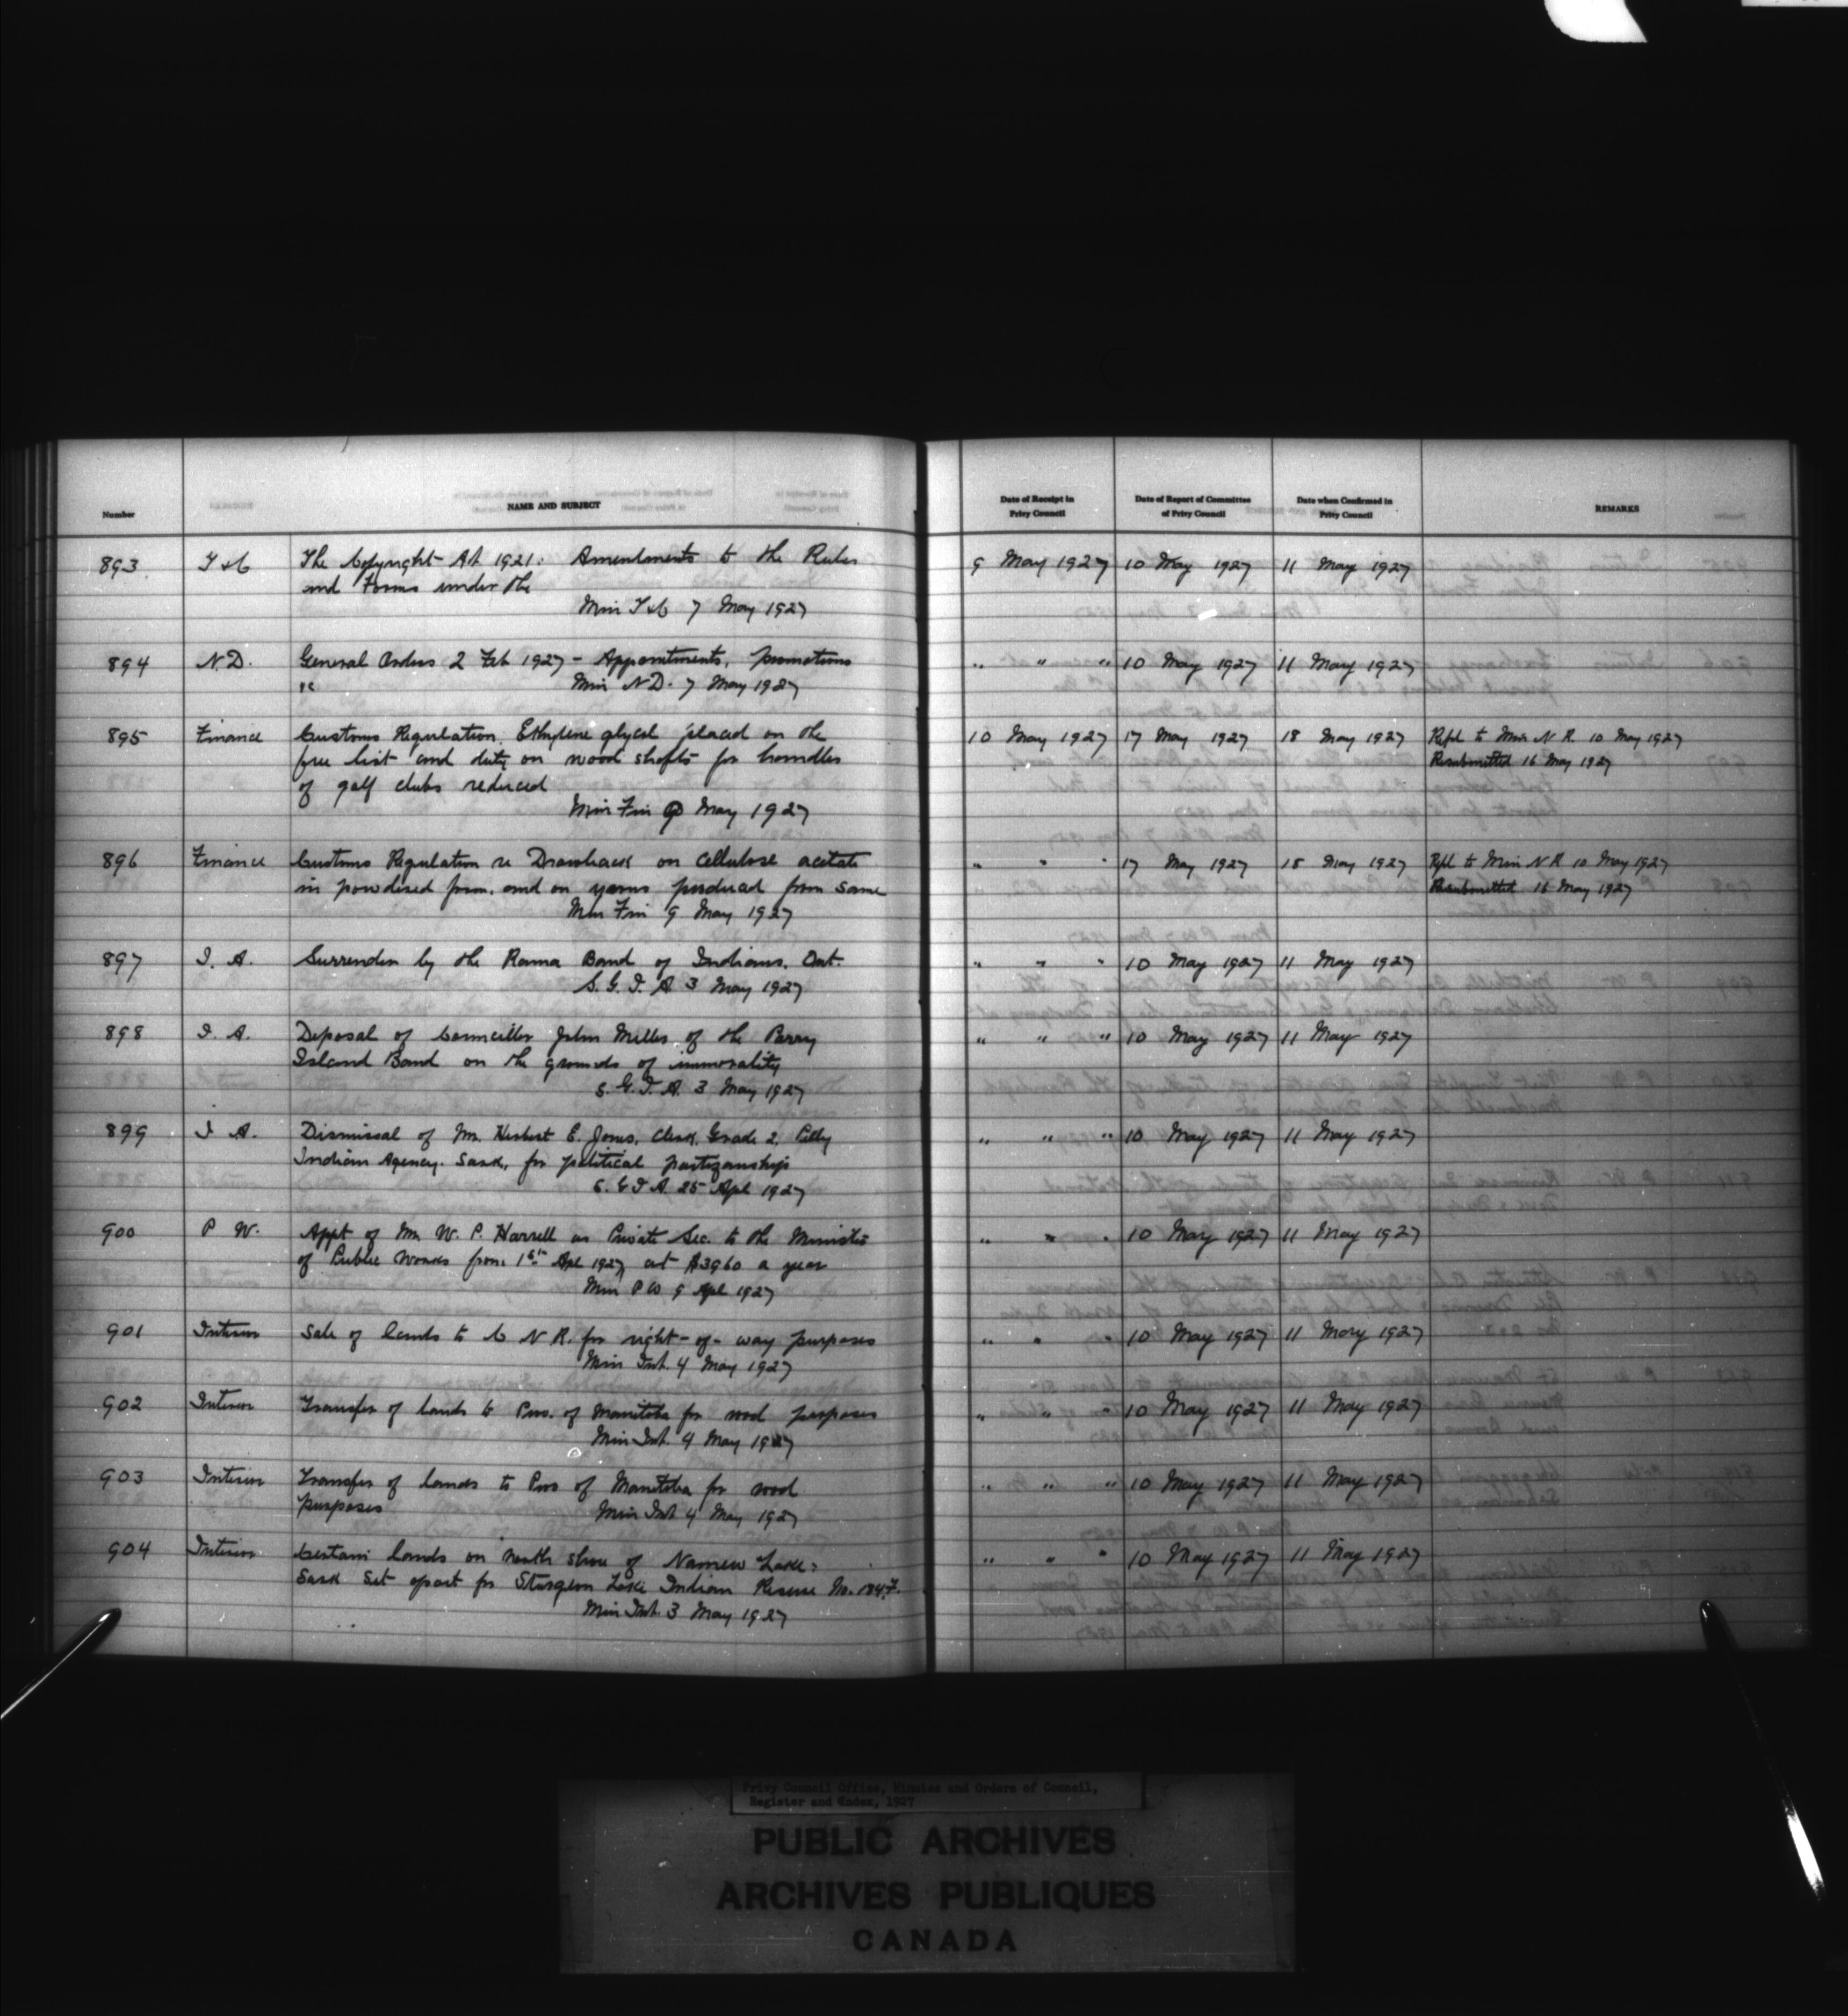 Number
NAME AND SUBJECT
Date of Receipt in Privy Council
Date of Report of Committee of Privy Council
Date when Confirmed in Privy Council
REMARKS
893 T & C The Copyright Act 1921: Amendments to the Rules 9 May 1927 10 May 1927 11 May 1927
and Forms under the
Min T & C 7 May 1927
894 N.D. General Orders 2 Feb 1927 - Appointments, promotions " " " 10 May 1927 11 May 1927
&c Min N D. 7 May 1927
895 Finance Customs Regulation. Ethylene glycol placed on the 10 May 1927 17 May 1927 18 May 1927 Refd to Min N R. 10 May 1927
free list and duty on wood shafts for handles Resubmitted 16 May 1927
of golf clubs reduced
Min Fin 9 May 1927
896 Finance Customs Regulation re Drawback on cellulose acetate " " " 17 May 1927 18 May 1927 Refd to Min N R 10 May 1927
in powdered form. and on yarns produced from same Resubmitted 16 May 1927
Min Fin 9 May 1927
897 I. A. Surrender by the Rama Band of Indians. Ont. " " " 10 May 1927 11 May 1927
S. G. I. A 3 May 1927
898 I. A. Deposal of Councillor John Miller of the Parry " " " 10 May 1927 11 May 1927
Island Band on the grounds of immorality
S. G. I. A. 3 May 1927
899 I A. Dismissal of Mr. Herbert E. Jones, Clerk, Grade 2. Pelly " " " 10 May 1927 11 May 1927
Indian Agency. Sask, for political partizanship
S. G I A. 25 Apl 1927
900 P W. Appt of Mr W. P. Harrell as Private Sec. to the Minister " " " 10 May 1927 11 May 1927
of Public Works from 1st Apl 1927 at $3960 a year
Min P W 9 Apl 1927
901 Interior Sale of lands to C N R. for right-of-way purposes " " " 10 May 1927 11 May 1927
Min Int. 4 May 1927
902 Interior Transfer of lands to Prov. of Manitoba for road purposes " " " 10 May 1927 11 May 1927
Min Int. 4 May 1927
903 Interior Transfer of lands to Prov of Manitoba for road " " " 10 May 1927 11 May 1927
purposes Min Int 4 May 1927
904 Interior Certain lands on north shore of Namew Lake: " " " 10 May 1927 11 May 1927
Sask set apart for Sturgeon Lake Indian Reserve No.
Min Int. 3 May 1927
Privy Council Office, Minutes and Orders of Council,
Register and Index, 1927
PUBLIC ARCHIVES
ARCHIVES PUBLIQUES
CANADA